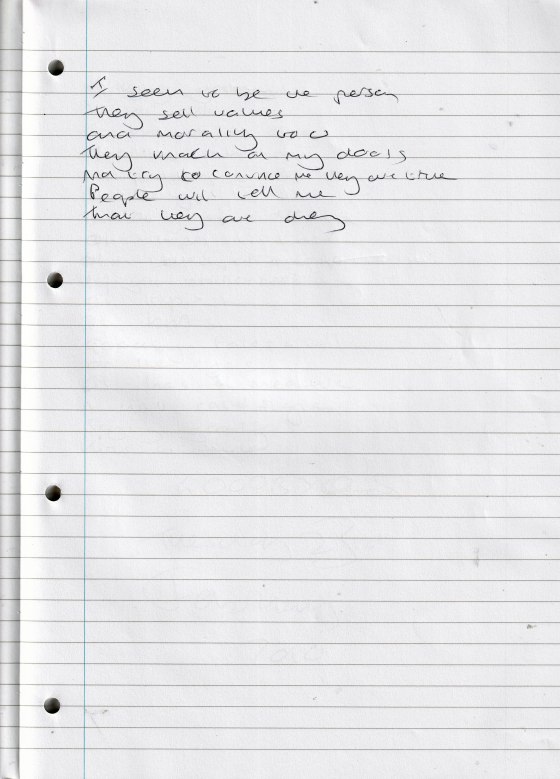 I seem to be the person
they sell values
and morality to
they knock on my doors
try to convince me they are true
People will tell me
that they are